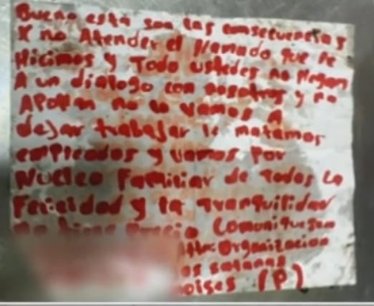 Bueno esta son las consecuencias
x no Atender el llamado que le
Hicimos y Todo ustedes no llegan
A un dialogo con nosotros y no
APollan no lo vamos A
dejar trabajar le matamos
empleados y vamos Por
Nucleo Familiar de todos La
Felicidad y la tranquilidad
no tiene Precio Comuniquesen
Organizacion
os satanas
oises (P)